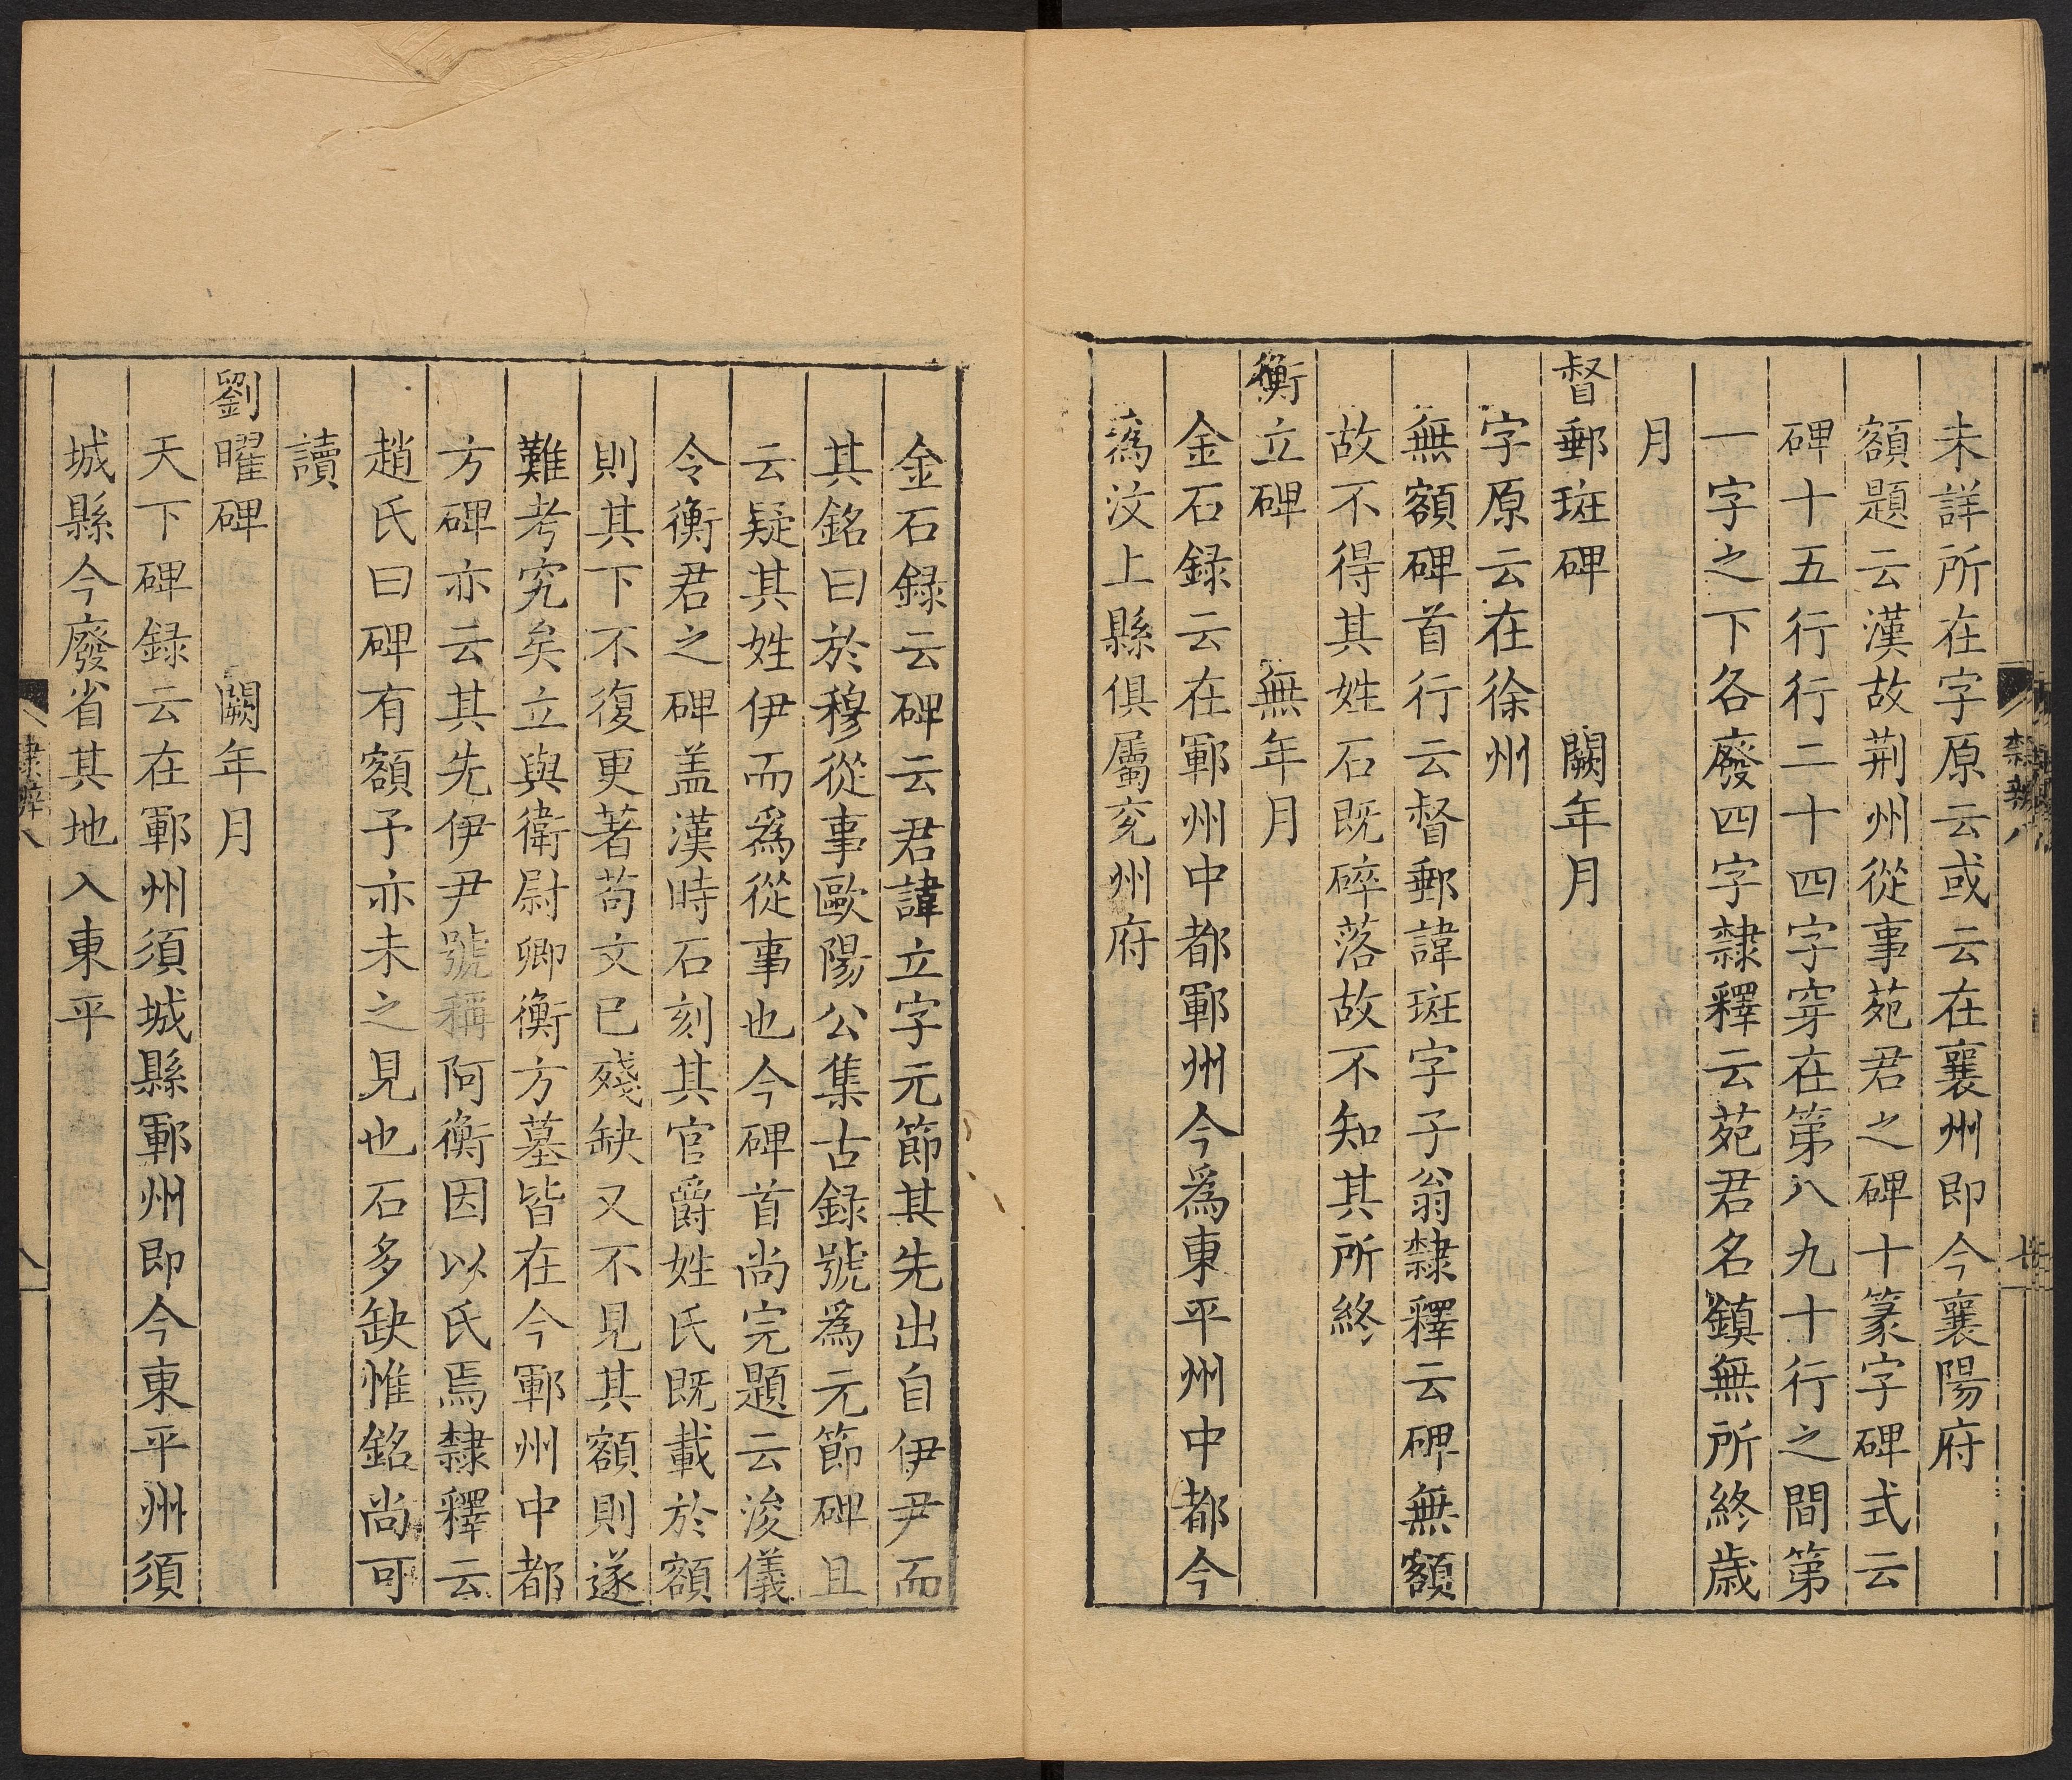 未詳所在字原云或云在襄州即今襄陽府
額題云漢故荆州從事苑君之碑十篆字碑式云
碑十五行行二十四字穿在第八九十行之間第
一字之下各廢四字隸釋云苑君名鎮無所終歲
月
督郵斑碑 闕年月
字原云在徐州
無額碑首行云督郵諱斑字子翁隸釋云碑無額
故不得其姓石既碎落故不知其所終
衡立碑 無年月
金石録云在鄆州中都鄆州今爲東平州中都今
爲汶上縣俱屬兖州府
金石録云碑云君諱立字元節其先出自伊尹而
其銘曰於穆從事歐陽公集古録號爲元節碑且
云疑其姓伊而爲從事也今碑首尚完題云浚儀
令衡君之碑盖漢時石刻其官爵姓氏既載於額
則其下不復更著苟文已殘缺又不見其額則遂
難考究矣立與衛尉卿衡方墓皆在今鄆州中都
方碑亦云其先伊尹號稱阿衡因以氏焉隸釋云
趙氏曰碑有額予亦未之見也石多缺惟銘尚可
讀
劉曜碑 闕年月
天下碑録云在鄆州須城縣鄆州即今東平州須
城縣今廢省其地入東平
隸辨八